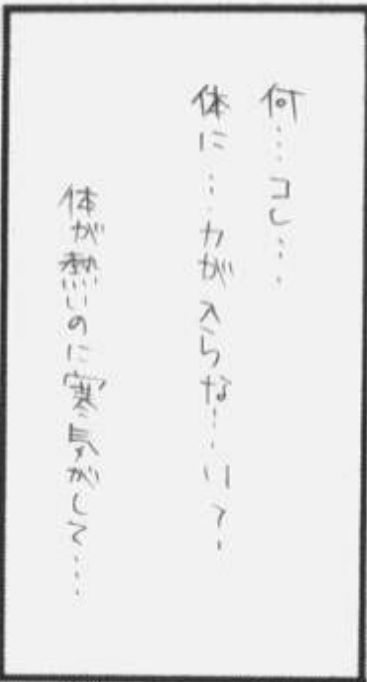 何…コレ…
体に…力が入らな…い？
体が熱いのに寒気がして…